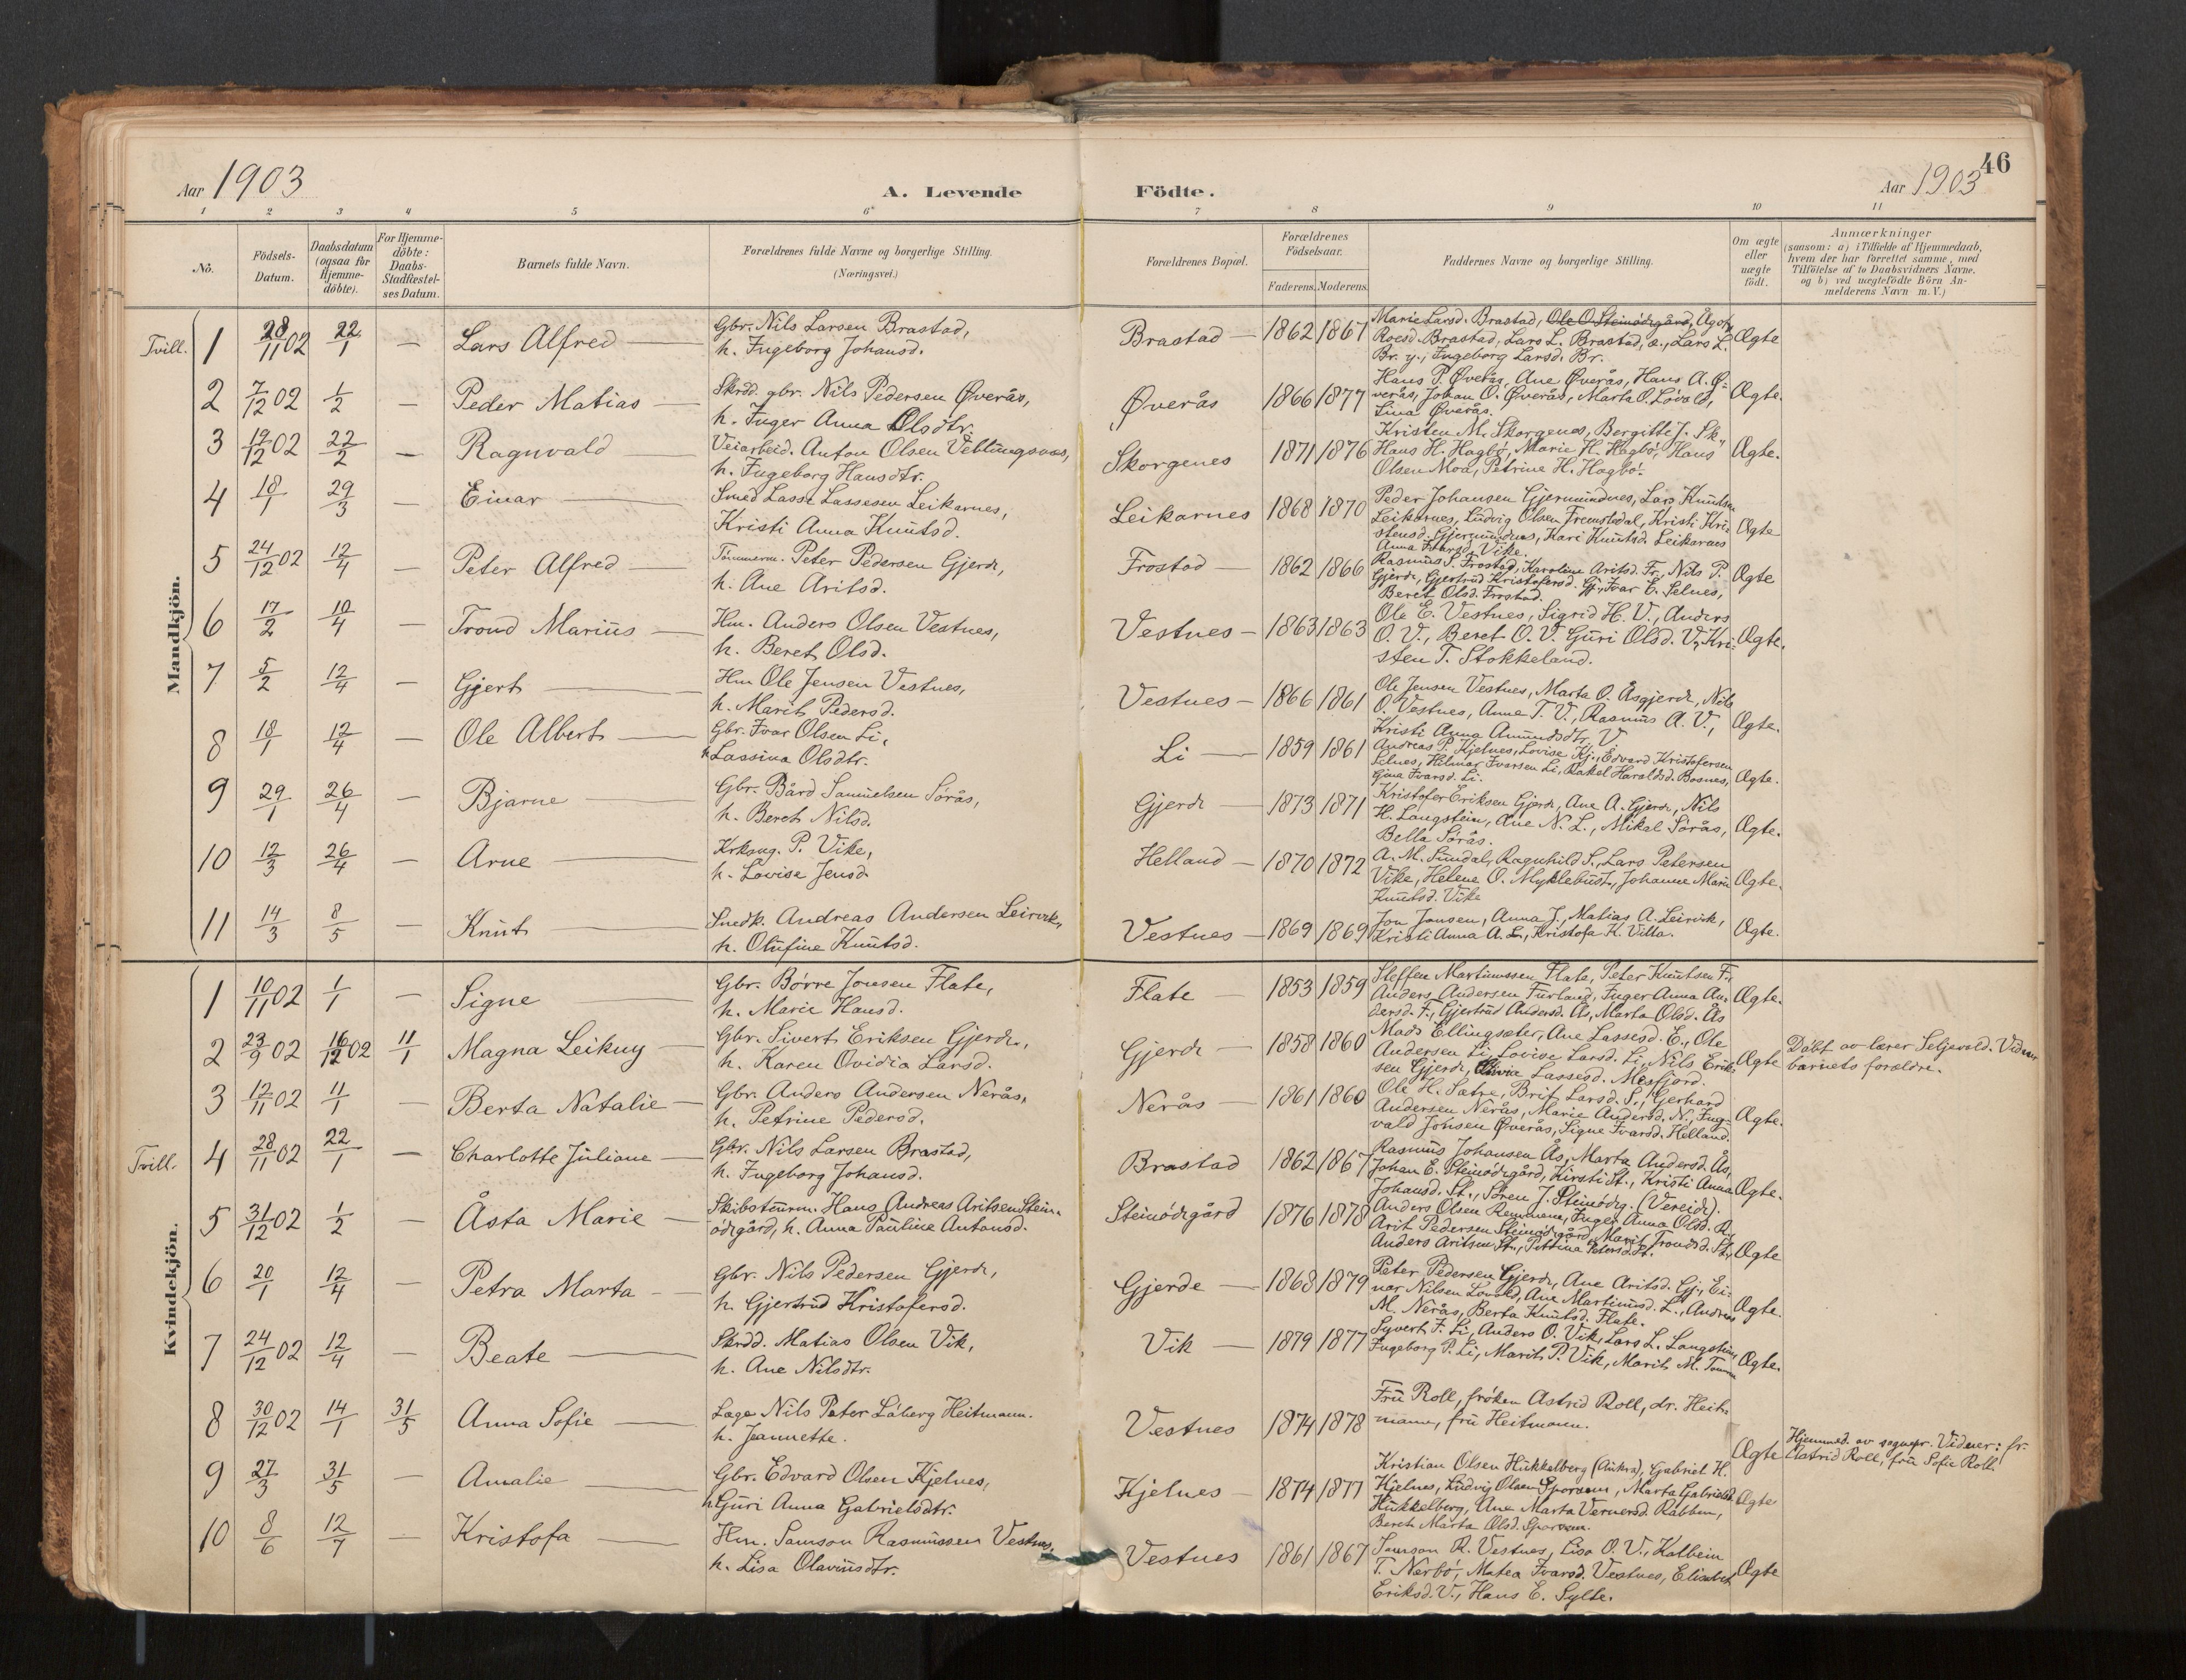 46
Aar 1903
A. Levende Födte.
Aar 1903
1 2 3 4 5 6 7 8 9 10 11
No.
Födsels-Datum.
Daabsdatum (ogsaa for Hjemme-döbte).
For Hjemme-döbte: Daabs-Stadfæstel-ses Datum.
Barnets fulde Navn.
Forældrenes fulde Navne og borgerlige Stilling.
(Næringsvei.)
Forældrenes Bopæl.
Forældrenes Födselsaar.
Faderens. Moderens.
Faddernes Navne og borgerlige Stilling.
Om ægte eller uægte födt.
Anmærkninger
(saasom: a) i Tilfælde af Hjemmedaab, hvem der har forrettet samme, med Tilföielse af to Daabsvidners Navne, og b) ved uægtefödte Börn An-melderens Navn m.V.)
Mandkjön.
Tvill. 1 28/11 02 22/1 — Lars Alfred — Gbr. Nils Larsen Brastad,
h. Ingeborg Johansd.
Brastad — 1862 1867 Marie Larsd. Brastad, Ole O. Steinødegård, Ågot
Roesd. Brastad, Lars L. Brastad, æ., Lars L.
Br. y., Ingeborg Larsd. Br.
Ægte
2 7/12 02 1/2 — Peder Matias — Skrdd. gbr. Nils Pedersen Øverås,
h. Inger Anna Olsdtr.
Øverås 1866 1877 Hans P. Øverås, Ane Øverås, Hans A. Ø-
verås, Johan O. Øverås, Marta O. Løvold,
Lina Øverås.
Ægte.
3 19/12 02 22/2 — Ragnvald — Veiarbeid. Anton Olsen Veblungsnes,
h. Ingeborg Hansdtr.
Skorgenes 1871 1876 Kristen M. Skorgenes, Bergitte J. Sk.,
Hans H. Hagbø, Marie H. Hagbø, Hans
Olsen Moa, Petrine H. Hagbø.
Ægte.
4 18/1 29/3 — Einar — Smed Lasse Lassesen Leikarnes,
Kristi Anna Knutsd.
Leikarnes 1868 1870 Peder Johansen Gjermundnes, Lars Knutsen
Leikarnes, Ludvig Olsen Fremstedal, Kristi Kri-
stensd. Gjermundnes, Kari Knutsd. Leikarnes
Anna Ivarsd. Vike.
Ægte
5 24/12 02 12/4 — Peter Alfred — Tømmerm. Peter Pedersen Gjerde,
h. Ane Aritsd.
Frostad — 1862 1866 Rasmus S. Frostad, Karoline Aritsd. Fr., Nils P.
Gjerde, Gjertrud Kristofersd. Gj., Ivar E. Selnes,
Beret Olsd. Frostad.
Ægte
6 17/2 10/4 — Trond Marius — Hm. Anders Olsen Vestnes,
h. Beret Olsd.
Vestnes — 1863 1863 Ole E. Vestnes, Sigrid H. V., Anders
O. V., Beret O. V. Guri Olsd. V., Kri-
sten T. Stokkeland.
Ægte.
7 5/2 12/4 — Gjert — Hm Ole Jensen Vestnes,
h. Marit Pedersd.
Vestnes — 1866 1861 Ole Jensen Vestnes, Marta O. Åsgjerde, Nils
O. Vestnes, Anne T. V., Rasmus A. V.,
Kristi Anna Amundsdtr. V
Ægte.
8 18/1 12/4 — Ole Albert — Gbr. Ivar Olsen Li,
h. Lassina Olsdtr.
Li — 1859 1861 Andreas P. Kjelnes, Lovise Kj., Edvard Kristofersen
Selnes, Helmar Ivarsen Li, Rakel Haraldsd. Bosnes,
Gina Ivarsd. Li.
Ægte.
9 29/1 26/4 — Bjarne — Gbr. Bård Samuelsen Sørås,
h. Beret Nilsd.
Gjerde — 1873 1871 Kristofer Eriksen Gjerde, Ane A. Gjerde, Nils
H. Langstein, Ane N. L., Mikal Sørås,
Bella Sørås.
Ægte.
10 12/3 26/4 — Arne — Krksng. P. Vike,
h. Lovise Jensd.
Helland — 1870 1872 A. M. Sundal, Ragnhild S., Lars Petersen
Vike, Helene O. Myklebust, Johanne Marie
Knutsd. Vike
Ægte.
11 14/3 8/5 — Knut — Snedk. Andreas Andersen Leirvik,
h. Olufine Knutsd.
Vestnes — 1869 1869 Jon Jonsen, Anna J., Matias A. Leirvik,
Kristi Anna A. L., Kristofa K. Villa.
Ægte.
Kvindekjön.
1 10/11 02 1/1 — Signe — Gbr. Børre Jonsen Flate,
h. Marie Hansd.
Flate — 1853 1859 Steffen Martinussen Flate, Peter Knutsen F.,
Anders Andersen Furland, Inger Anna An-
dersd. F., Gjertrud Andersd. Ås, Marta Olsd. Ås
Ægte.
2 23/9 02 16/12 02 11/1 Magna Leikny — Gbr. Sivert Eriksen Gjerde,
h. Karen Ovidia Larsd.
Gjerde — 1858 1860 Mads Ellingsæter, Ane Lassesd. E., Ole
Andersen Li, Lovise Larsd. Li, Nils Erik-
sen Gjerde, Olivia Lassesd. Misfjord.
Ægte Døbt av lærer Seljevold. Vidner
barnets forældre.
3 12/11 02 11/1 — Berta Natalie — Gbr. Anders Andersen Nerås,
h. Petrine Pedersd.
Nerås — 1861 1860 Ole H. Sætre, Brit Larsd. S., Gerhard
Andersen Nerås, Marie Andersd. N., Ing-
vald Jonsen Øverås, Signe Ivarsd. Helland.
Ægte.
Tvill. 4 28/11 02 22/1 — Charlotte Juliane — Gbr. Nils Larsen Brastad,
h. Ingeborg Johansd.
Brastad 1862 1867 Rasmus Johansen Ås, Marta Andersd. Ås,
Johan E. Steinødegård, Kirsti St., Kristi Anna
Johansd. St., Søren J. Steinødeg. (Vereide).
Ægte.
5 31/12 02 1/2 — Åsta Marie — Skibstømrm. Hans Andreas Aritsen Stein-
ødegård, h. Anna Pauline Antonsd.
Steinødegård 1876 1878 Anders Olsen Remmem, Inger Anna Olsd. R.,
Arit Pedersen Steinødegård, Marit Trondsd. St.,
Anders Aritsen St., Pettina Petersd. St.
Ægte
6 20/1 12/4 — Petra Marta — Gbr. Nils Pedersen Gjerde,
h. Gjertrud Kristofersd.
Gjerde — 1868 1879 Peter Pedersen Gjerde, Ane Aritsd. Gj., Ei-
nar Nilsen Løvold, Ane Martinusd. L., Andreas
M. Nerås, Berta Knutsd. Flate.
Ægte.
7 24/12 02 12/4 — Beate — Skrdd. Matias Olsen Vik,
h. Ane Nilsdtr.
Vik — 1879 1877 Syvert F. Li, Anders O. Vik, Lars L. Langstein,
Ingeborg P. Li, Marit P. Vik, Marit M.
Ægte.
8 30/12 02 14/1 31/5 Anna Sofie — Læge Nils Peter Låberg Heitmann.
h. Jeannette.
Vestnes 1874 1878 Fru Roll, frøken Astrid Roll, dr. Heit-
mann, fru Heitmann.
Ægte Hjemmed. av sognepr. Vidner: fr.
Astrid Roll, fru Sofie Roll.
9 27/3 31/5 — Amalie — Gbr. Edvard Olsen Kjelnes,
h. Guri Anna Gabrielsdtr.
Kjelnes — 1874 1877 Kristian Olsen Hukkelberg (Aukra), Gabriel H.
Kjelnes, Ludvig Olsen Sporsem, Marta Gabrielsd.
Hukkelberg, Ane Marta Vernersd. Rabben,
Beret Marta Olsd. Sporsem.
Ægte
10 8/6 12/7 — Kristofa — Hm. Samson Rasmussen Vestnes,
h. Lisa Olavusdtr.
Vestnes 1861 1867 Samson R. Vestnes, Lisa O. V., Kolbein
T. Nerbø, Matea Ivarsd. Vestnes, Elisabet
Eriksd. V., Hans E. Sylte.
Ægte